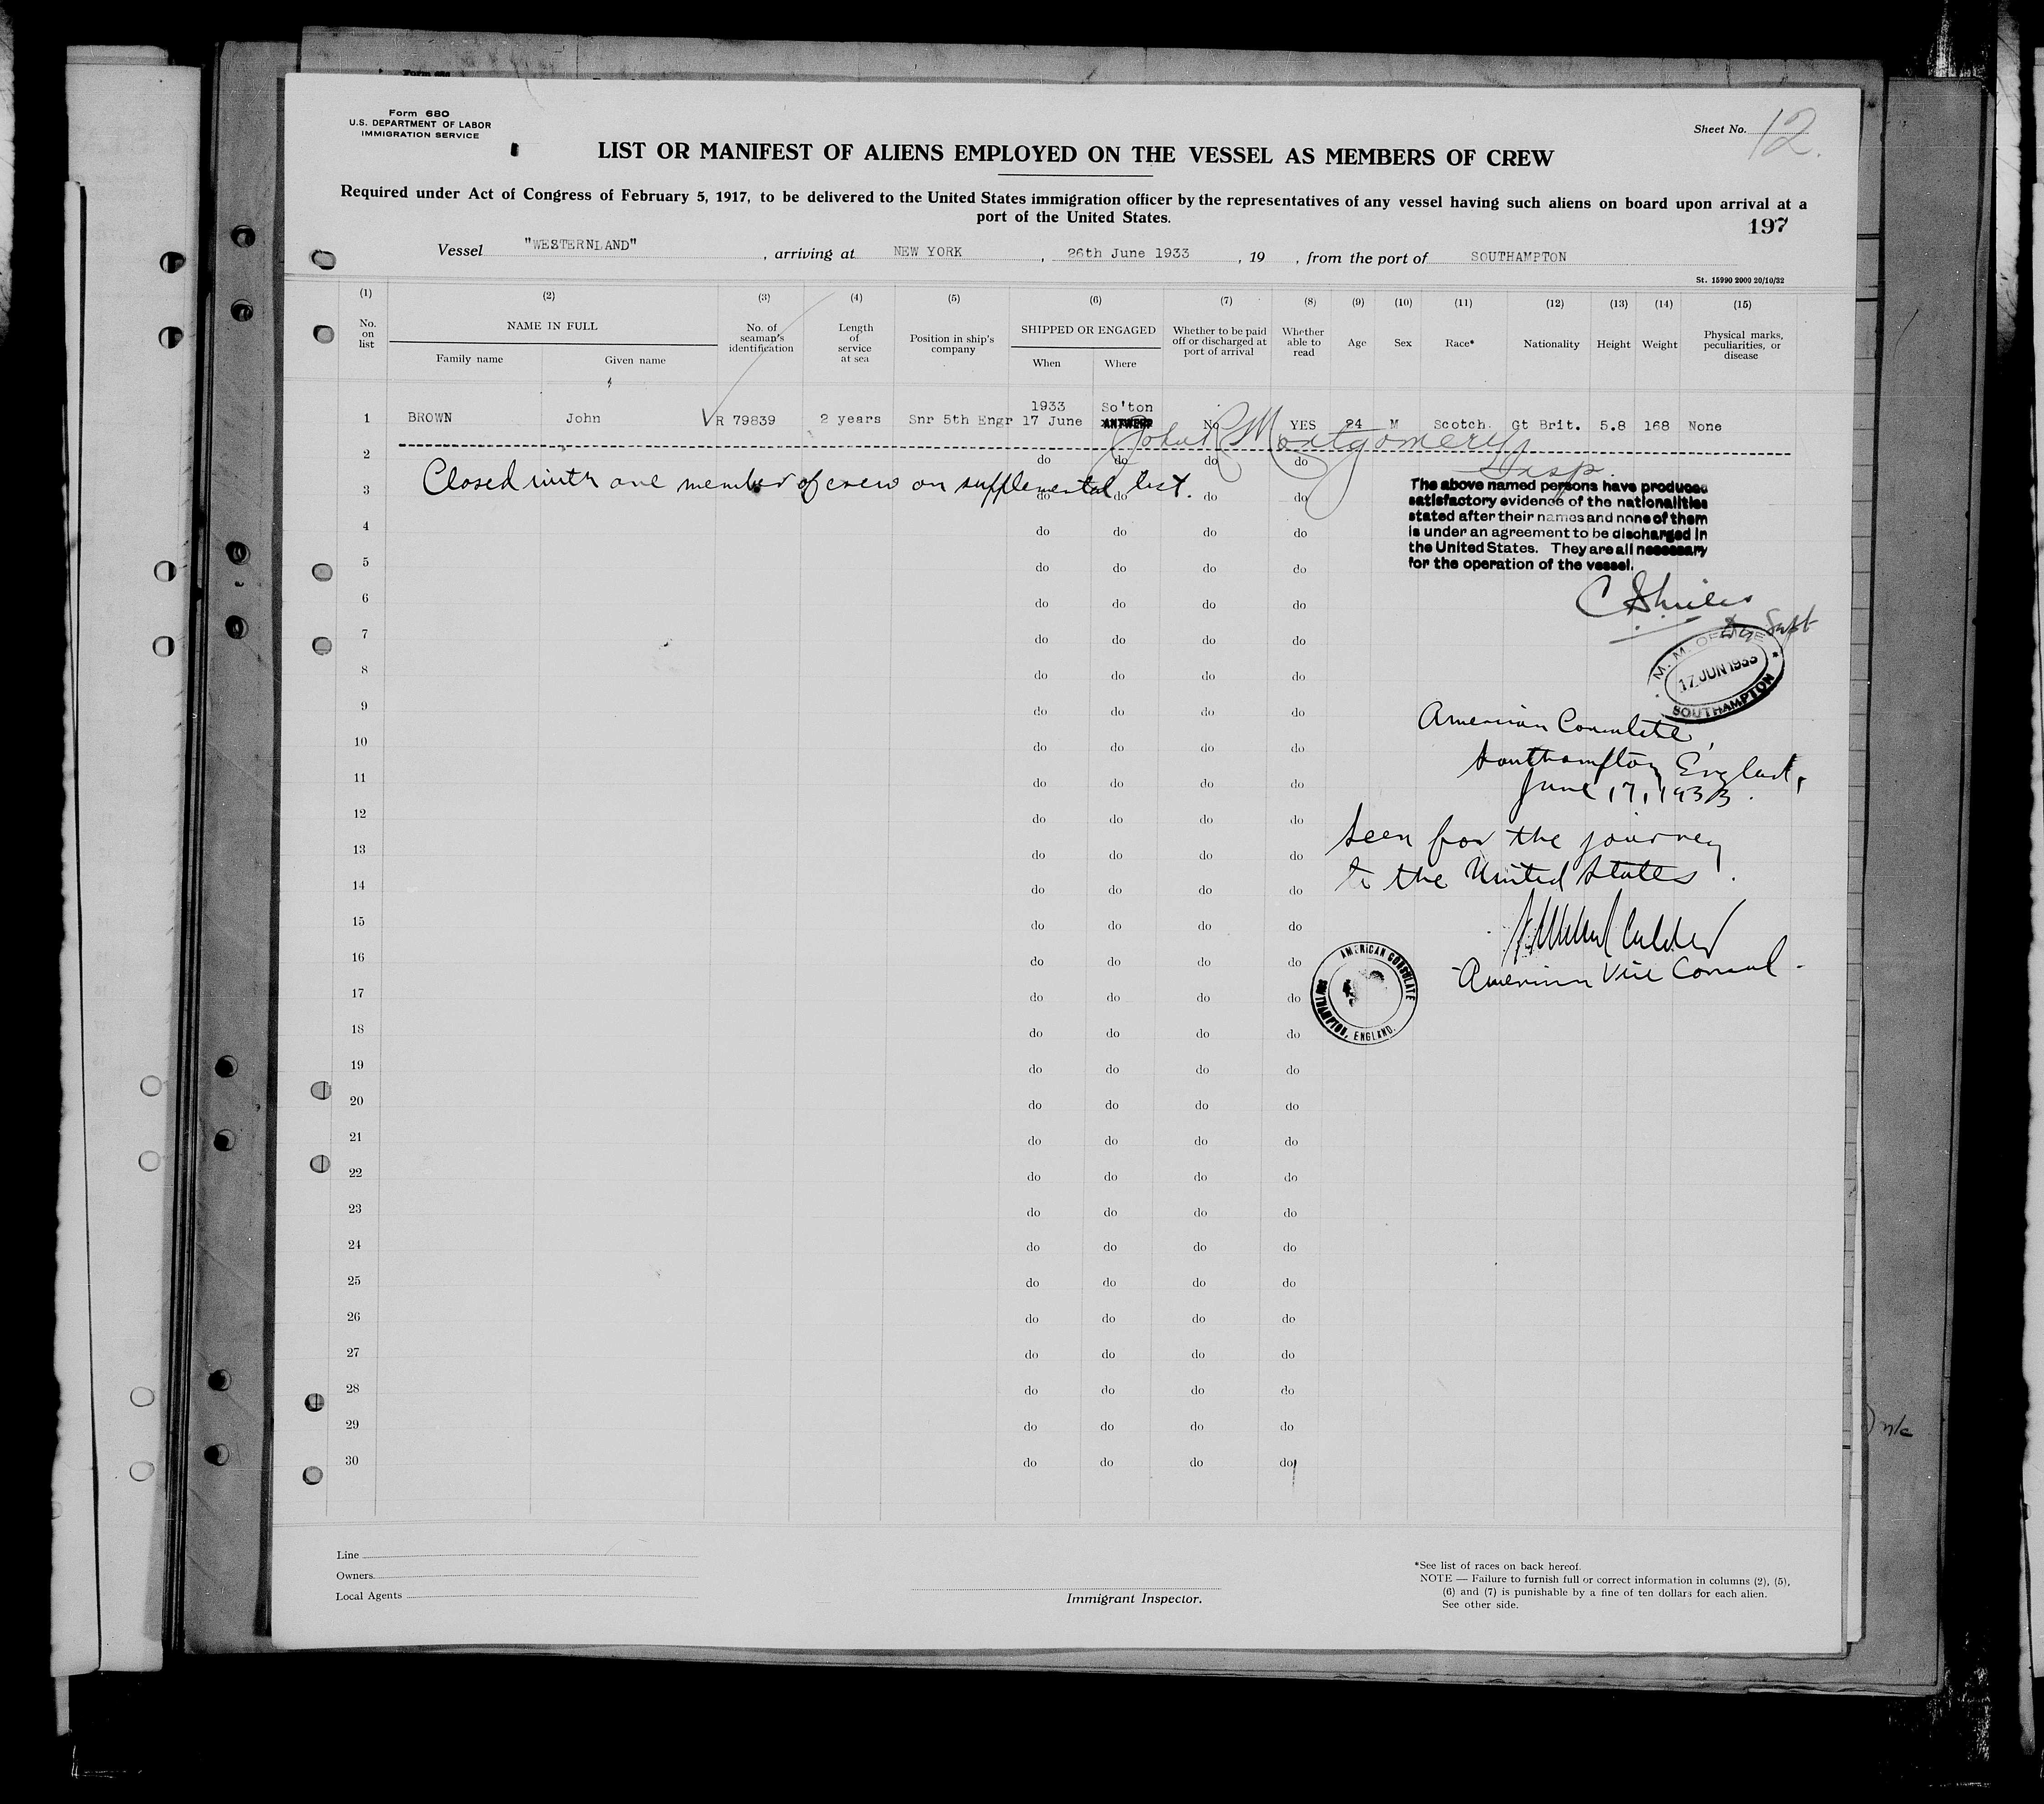 Form 680
U.S. DEPARTMENT OF LABOR
IMMIGRATION SERVICE
Sheet No. 12.
LIST OR MANIFEST OF ALIENS EMPLOYED ON THE VESSEL AS MEMBERS OF CREW
Required under Act of Congress of February 5, 1917, to be delivered to the United States immigration officer by the representatives of any vessel having such aliens on board upon arrival at a
port of the United States.
197
Vessel "WESTERNLAND", arriving at NEW YORK, 26th June 1933, 19 , from the port of SOUTHAMPTON
St. 15990 2000 20/10/32
(1) (2) (3) (4) (5) (6) (7) (8) (9) (10) (11) (12) (13) (14) (15)
No. on list NAME IN FULL Family name Given name No. of seaman's identification Length of service at sea Position in ship's company SHIPPED OR ENGAGED When Where Whether to be paid off or discharged at port of arrival Whether able to read Age Sex Race* Nationality Height Weight Physical marks, peculiarities, or disease
1933 So'ton
1 BROWN John √R 79839 2 years Snr 5th Engr 17 June ANTWERP No YES 24 M Scotch Gt Brit. 5.8 168 None
John R Montgomery
Insp.
2 do do do do
Closed with one member of crew on supplemental list.
3 do do do do
The above named persons have produced
satisfactory evidence of the nationalities
stated after their names and none of them
is under an agreement to be discharged in
the United States. They are all necessary
for the operation of the vessel.
4 do do do do
5 do do do do
6 do do do do
7 do do do do
Supt
M. M. OFFICE
17 JUN 1933
SOUTHAMPTON
8 do do do do
9 do do do do
American Consulate,
10 do do do do
Southampton, England,
11 do do do do
June 17, 1933.
12 do do do do
Seen for the journey
13 do do do do
to the United States.
14 do do do do
15 do do do do
16 do do do do
American Vice Consul.
AMERICAN CONSULATE
SOUTHAMPTON, ENGLAND.
17 do do do do
18 do do do do
19 do do do do
20 do do do do
21 do do do do
22 do do do do
23 do do do do
24 do do do do
25 do do do do
26 do do do do
27 do do do do
28 do do do do
29 do do do do
30 do do do do
n/c
Line
Owners
Local Agents
Immigrant Inspector.
*See list of races on back hereof.
NOTE — Failure to furnish full or correct information in columns (2), (5),
(6) and (7) is punishable by a fine of ten dollars for each alien.
See other side.